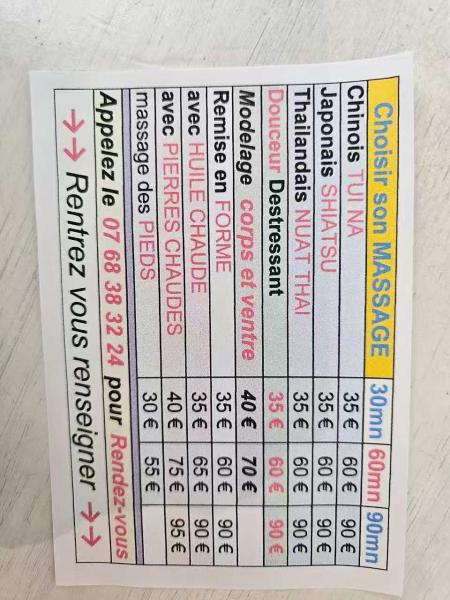 Choisir son MASSAGE 30mn 60mn 90mn
Chinois TUI NA 35 € 60 € 90 €
Japonais SHIATSU 35 € 60 € 90 €
Thailandais NUAT THAI 35 € 60 € 90 €
Douceur Destressant 35 € 60 € 90 €
Modelage corps et ventre 40 € 70 €
Remise en FORME 35 € 60 € 90 €
avec HUILE CHAUDE 35 € 65 € 90 €
avec PIERRES CHAUDES 40 € 75 € 95 €
massage des PIEDS 30 € 55 €
Appelez le 07 68 38 32 24 pour Rendez-vous
→→ Rentrez vous renseigner →→